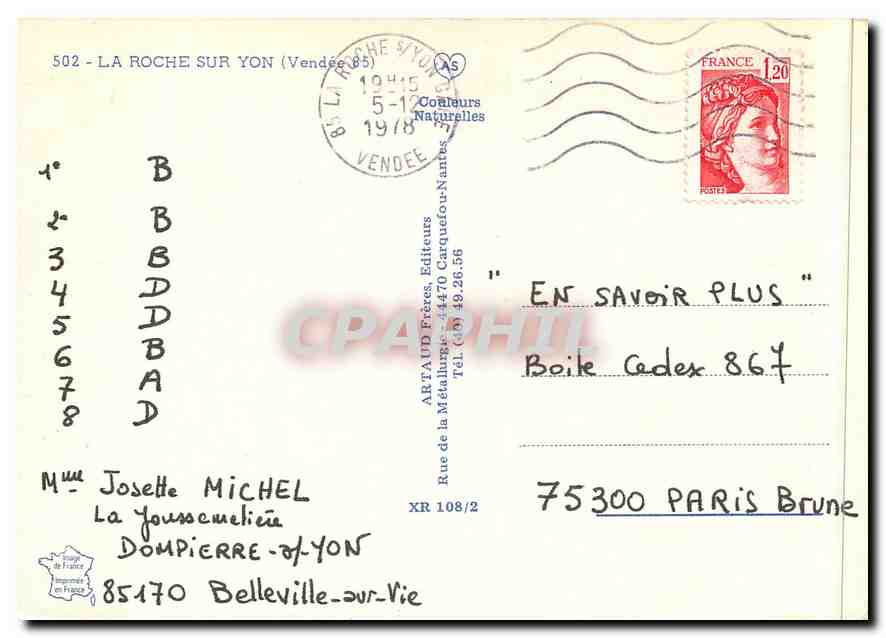 502 - LA ROCHE SUR YON (Vendée 85)
85 LA ROCHE S/YON GARE
19H15
5-12
1978
VENDEE
AS
Couleurs
Naturelles
FRANCE 1,20
POSTES
1° B
2° B
3 B
4 D
5 D
6 B
7 A
8 D
Mme Josette MICHEL
La Joussemelière
DOMPIERRE-s/-YON
85170 Belleville-sur-Vie
Image
de France
Imprimée
en France
ARTAUD Frères, Editeurs
Rue de la Métallurgie - 44470 Carquefou-Nantes
Tél. (40) 49.26.56
XR 108/2
" EN SAVOIR PLUS "
Boite Cedex 867
75300 PARIS Brune
CPAPHIL